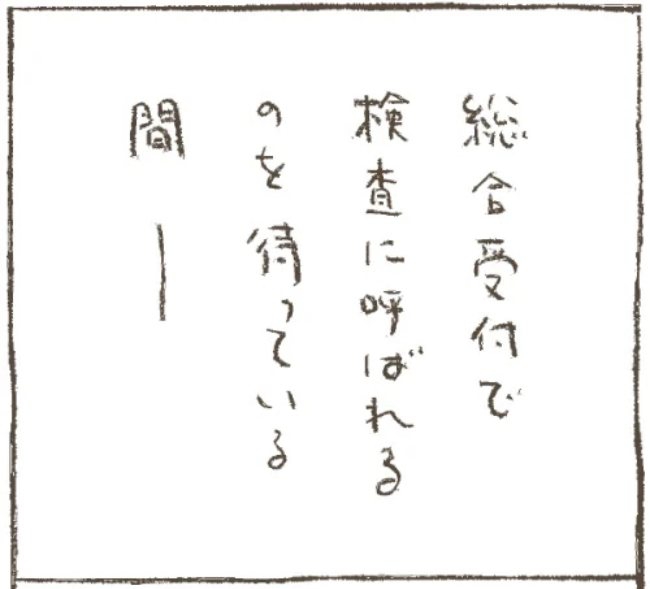 総合受付で
検査に呼ばれる
のを待っている
間―